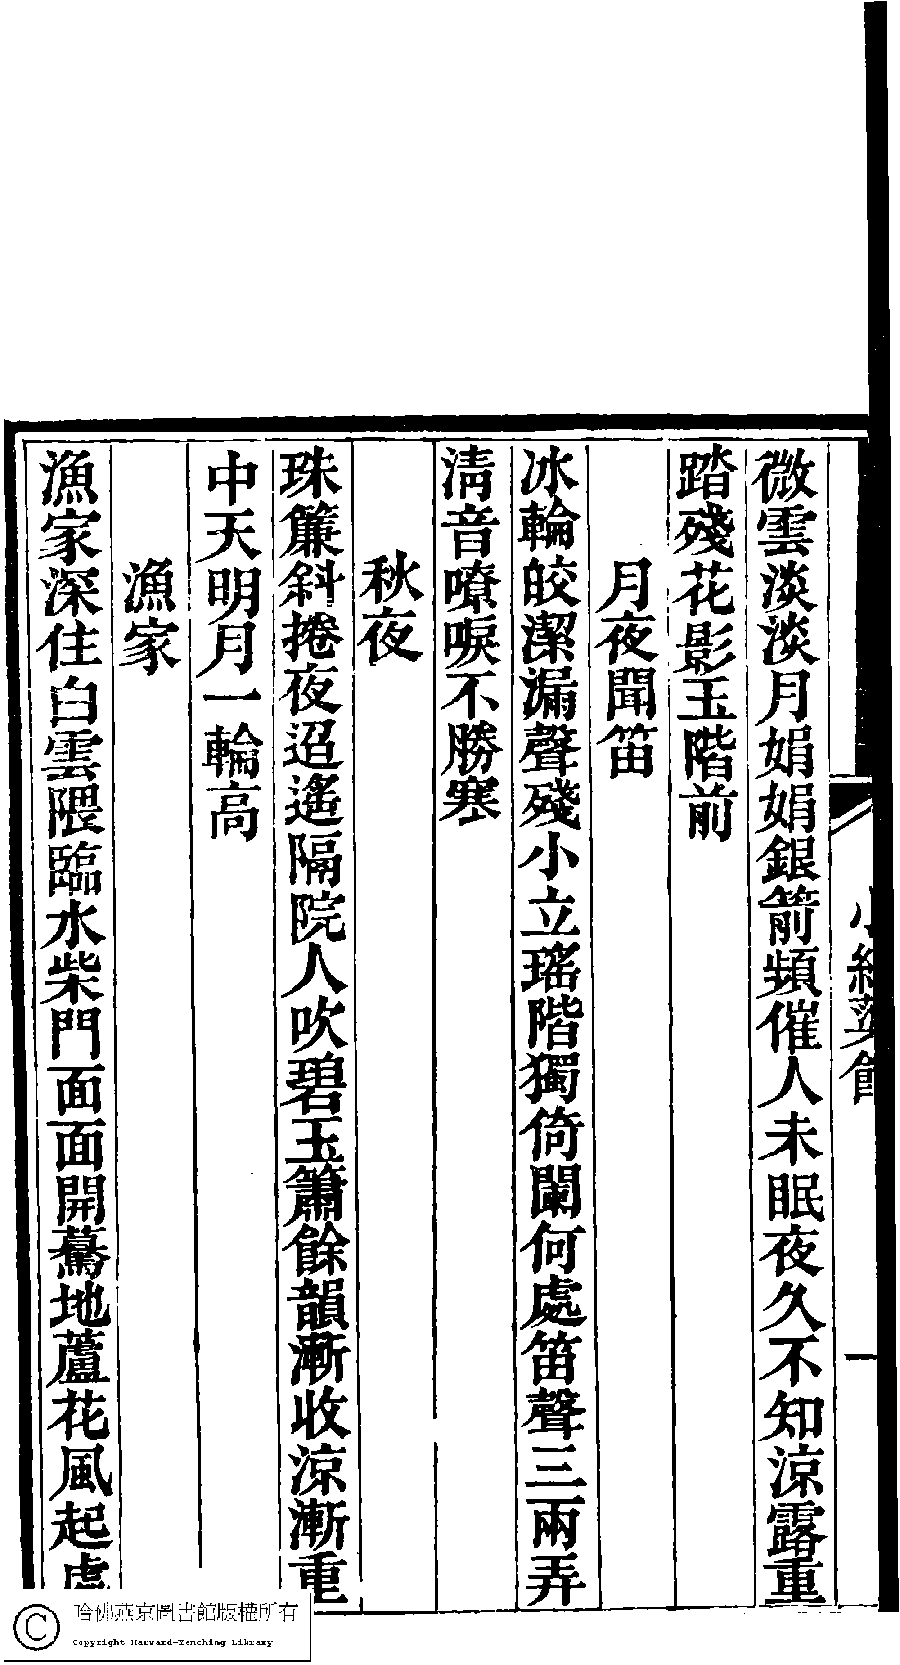 微雲淡淡月娟娟銀箭頻催人未眠夜久不知涼露重
踏殘花影玉階前
月夜聞笛
冰輪皎潔漏聲殘小立瑤階獨倚闌何處笛聲三兩弄
清音嘹唳不勝寒
秋夜
珠簾斜捲夜迢遙隔院人吹碧玉簫餘韻漸收涼漸重
中天明月一輪高
漁家
漁家深住白雲隈臨水柴門面面開驀地蘆花風起處
哈佛燕京圖書館版權所有
Copyright Harvard-Yenching Library